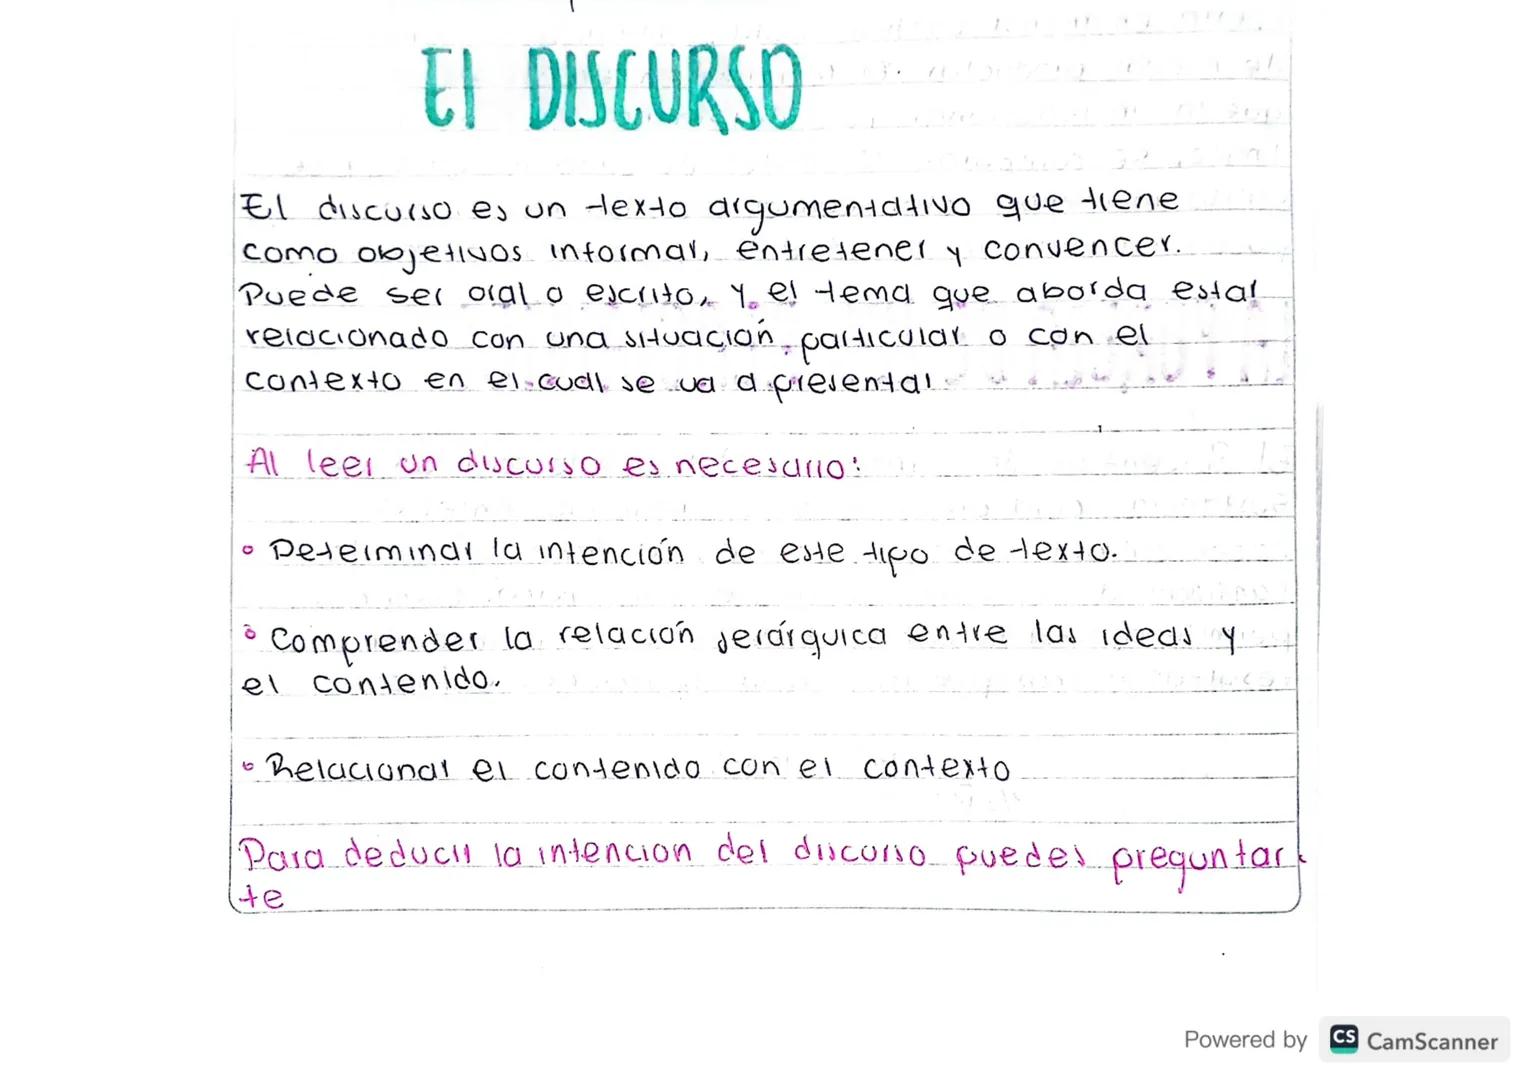 El DISCURSO
El discurso es un texto argumentativo que tiene
como objetivos informar, entretener y convencer.
Puede ser oral o escrito, y el tema que aborda estar
relacionado con una situación particular o con el
contexto en el cual se va a presentar
Al leer un discurso es necesario:
• Determinar la intención de este tipo de texto.
• Comprender la relación jerárquica entre las ideas y
el contenido.
• Relacionar el contenido con el contexto
Para deducir la intencion del discurso puedes preguntar
te
Powered by CS CamScanner